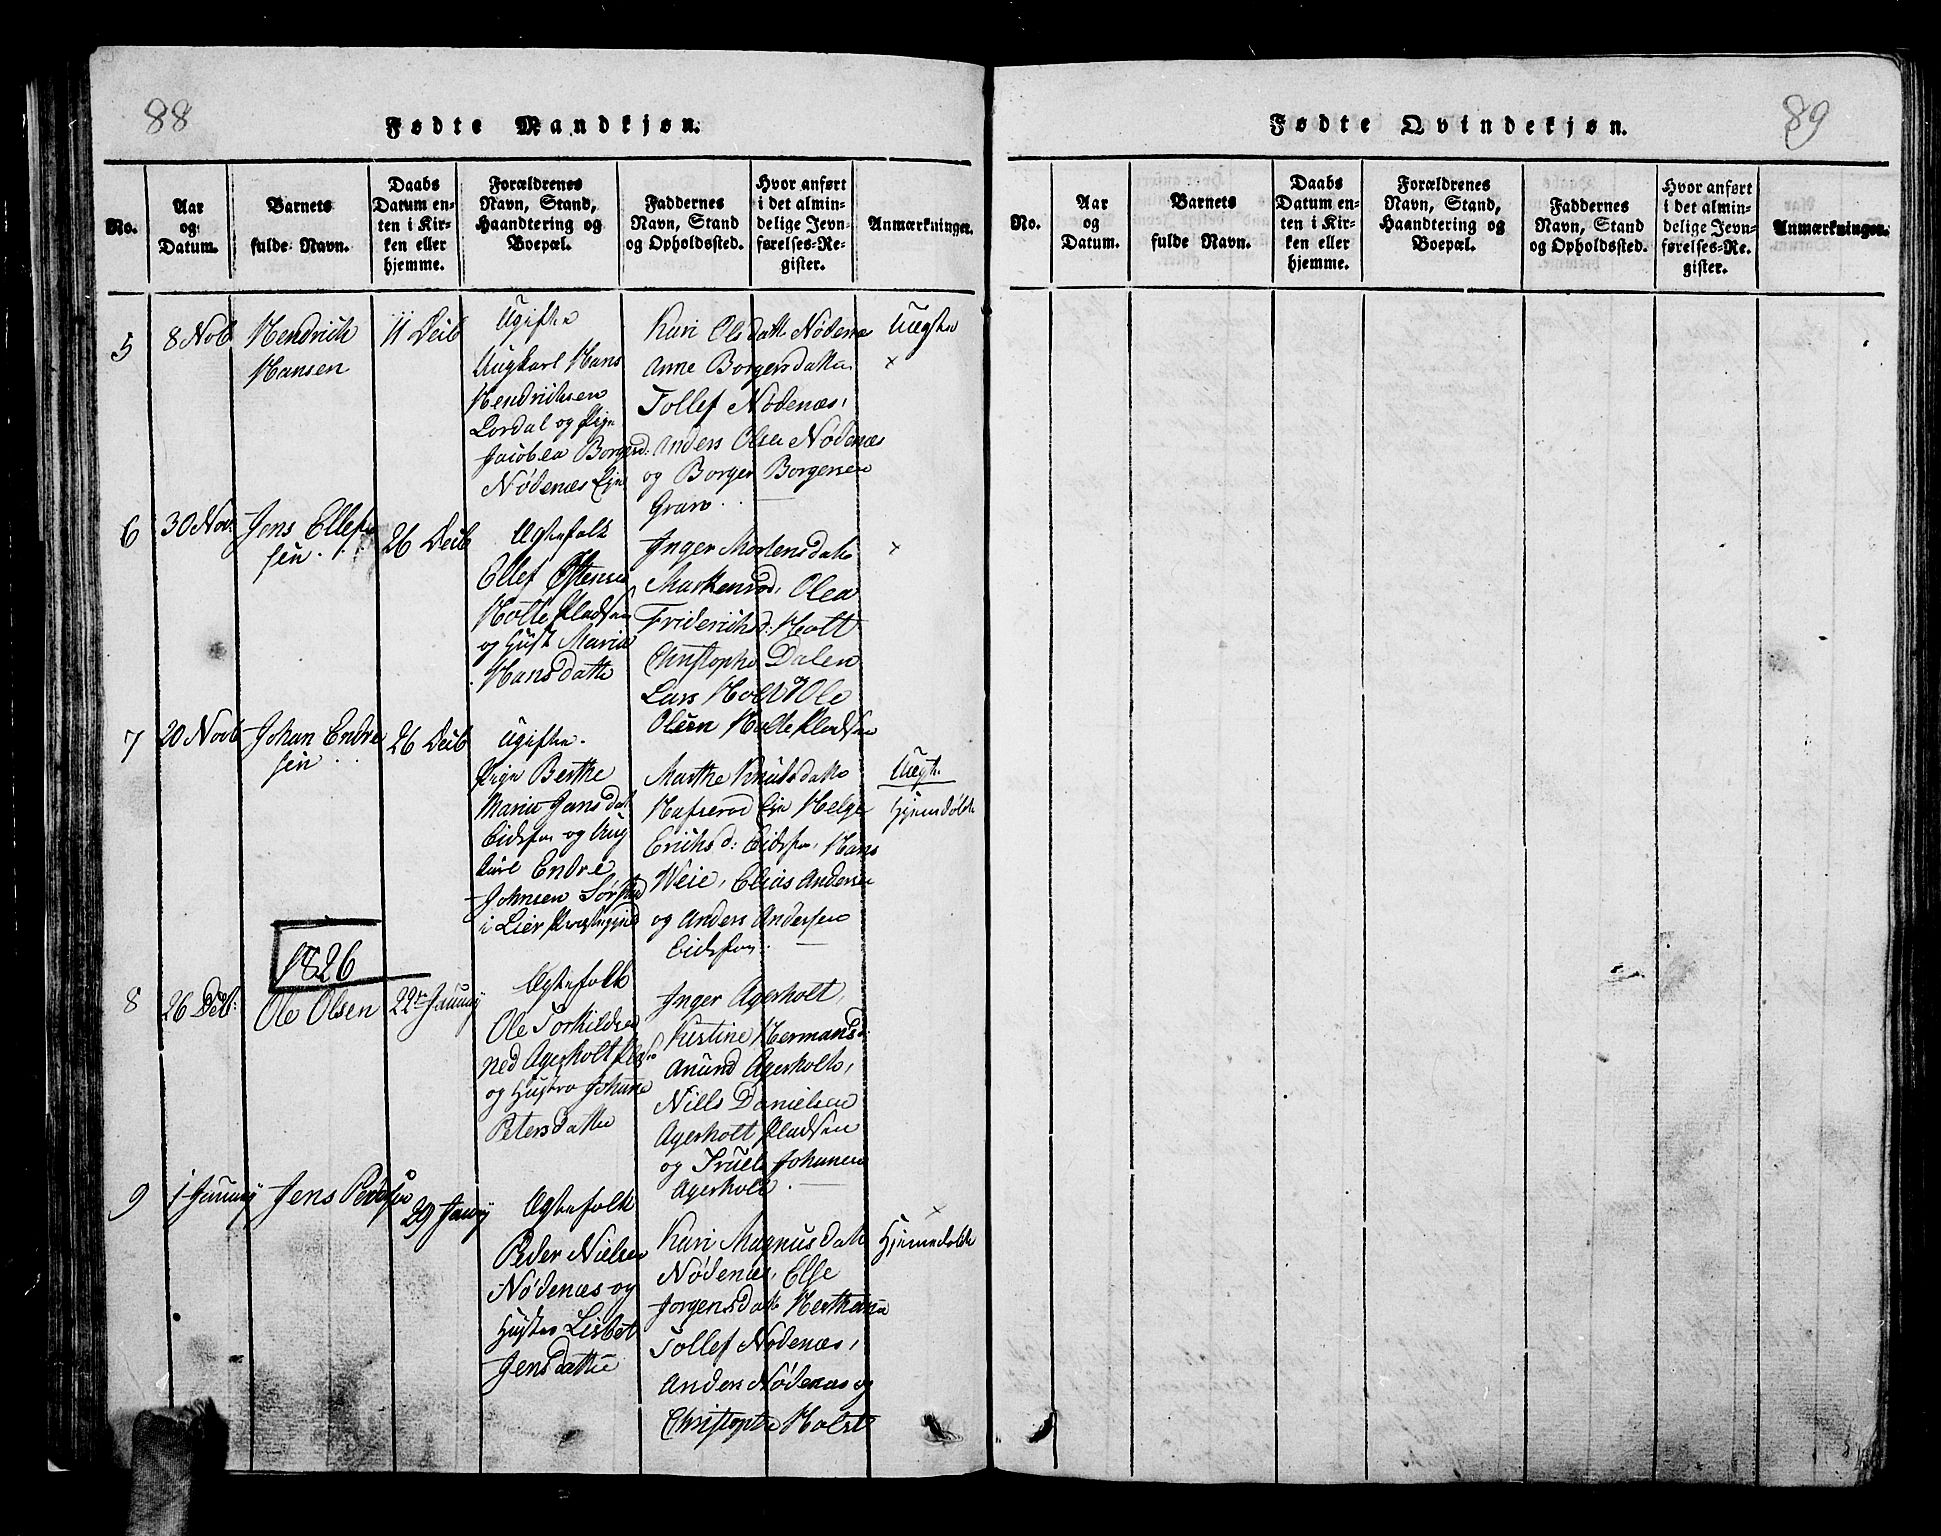 88
Fødte Mandkjøn.
No.
Aar
og
Datum.
Barnets
fulde Navn.
Daabs
Datum en-
ten i Kir-
ken eller
hjemme.
Forældrenes
Navn, Stand,
Haandtering og
Boepæl.
Faddernes
Navn, Stand
og Opholdssted.
Hvor anført
i det almin-
delige Jevn-
førelses-Re-
gister.
Anmærkninger.
5
8 Novb
Hendrich
Hansen
11 Decb
Ugifte
Ungkarl Hans
Hendrichsen
Lordal og Pige
Jacobea Borgersd:
Nødenæs Eje
Kari Olsdatte Nødenæs
Anne Borgersdatter
Tollef Nødenæs,
Anders Olsen Nødenæs
og Borger Borgersen
Gran.
Uægte
×
6
30 Nov:
Jens Ellef
sen.
26 Decb
Ægtefolk
Ellef Østensen
Holte Pladsen
og Hust Maria
Hansdatte
Inger Mortensdatte
Markerud, Olea
Friderichsd: Holt
Christophe Dalen
Lars Holt og Ole
Olsen Holte Pladsen
×
7
20 Novb
Johan Endre
sen
26 Decb
Ugifte.
Pige Berthe
Marie Jensdat
Eidsfos og Ung
karl Endre
Johnsen
i Lier Præstegjeld
Marthe Knudsdatte
Eje Helge
Erichsd: Eidsfos, Hans
Weie, Elias Andersen
og Anders Andersen
Eidsfos.
Uægt.
Hjemdøbt
1826
8
26 Decb:
Ole Olsen
22de January
Ægtefolk
Ole Torkildsen
ned Agerholt Plads
og Hustro Johane
Petersdatter
Inger Agerholt,
Kistine Hermansd:
Anund Agerholt,
Niels Danielsen
Agerholt Pladsen
og Truels Johansen
Agerholt.
9
1 January
Jens Pedersen
29 Janry
Ægtefolk
Peder Nielsen
Nødenæs og
Hustro Lisbet
Jensdatter
Kari Magnusdatte
Nødenæs, Else
Jorgensdatte
Tollef Nødenæs,
Anders Nødenæs og
Christophe Holst
×
Hjemedøbt
89
Fødte Qvindekjøn.
No.
Aar
og
Datum.
Barnets
fulde Navn.
Daabs
Datum en-
ten i Kir-
ken eller
hjemme.
Forældrenes
Navn, Stand,
Haandtering og
Boepæl.
Faddernes
Navn, Stand
og Opholdssted.
Hvor anført
i det almin-
delige Jevn-
førelses-Re-
gister.
Anmærkninger.